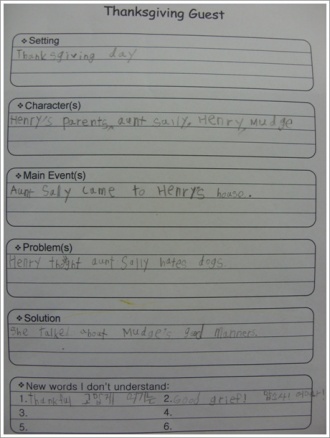 Thanksgiving Guest
❖ Setting
Thanksgiving day
❖ Character(s)
Henry's parents, aunt sally, Henry, Mudge
❖ Main Event(s)
Aunt Sally came to Henry's house.
❖ Problem(s)
Henry thoght aunt Sally hates dogs
❖ Solution
She talked about Mudge's good manners.
❖ New words I don't understand:
1. Thankful 고맙게 2. Good grief!
3. 4.
5. 6.